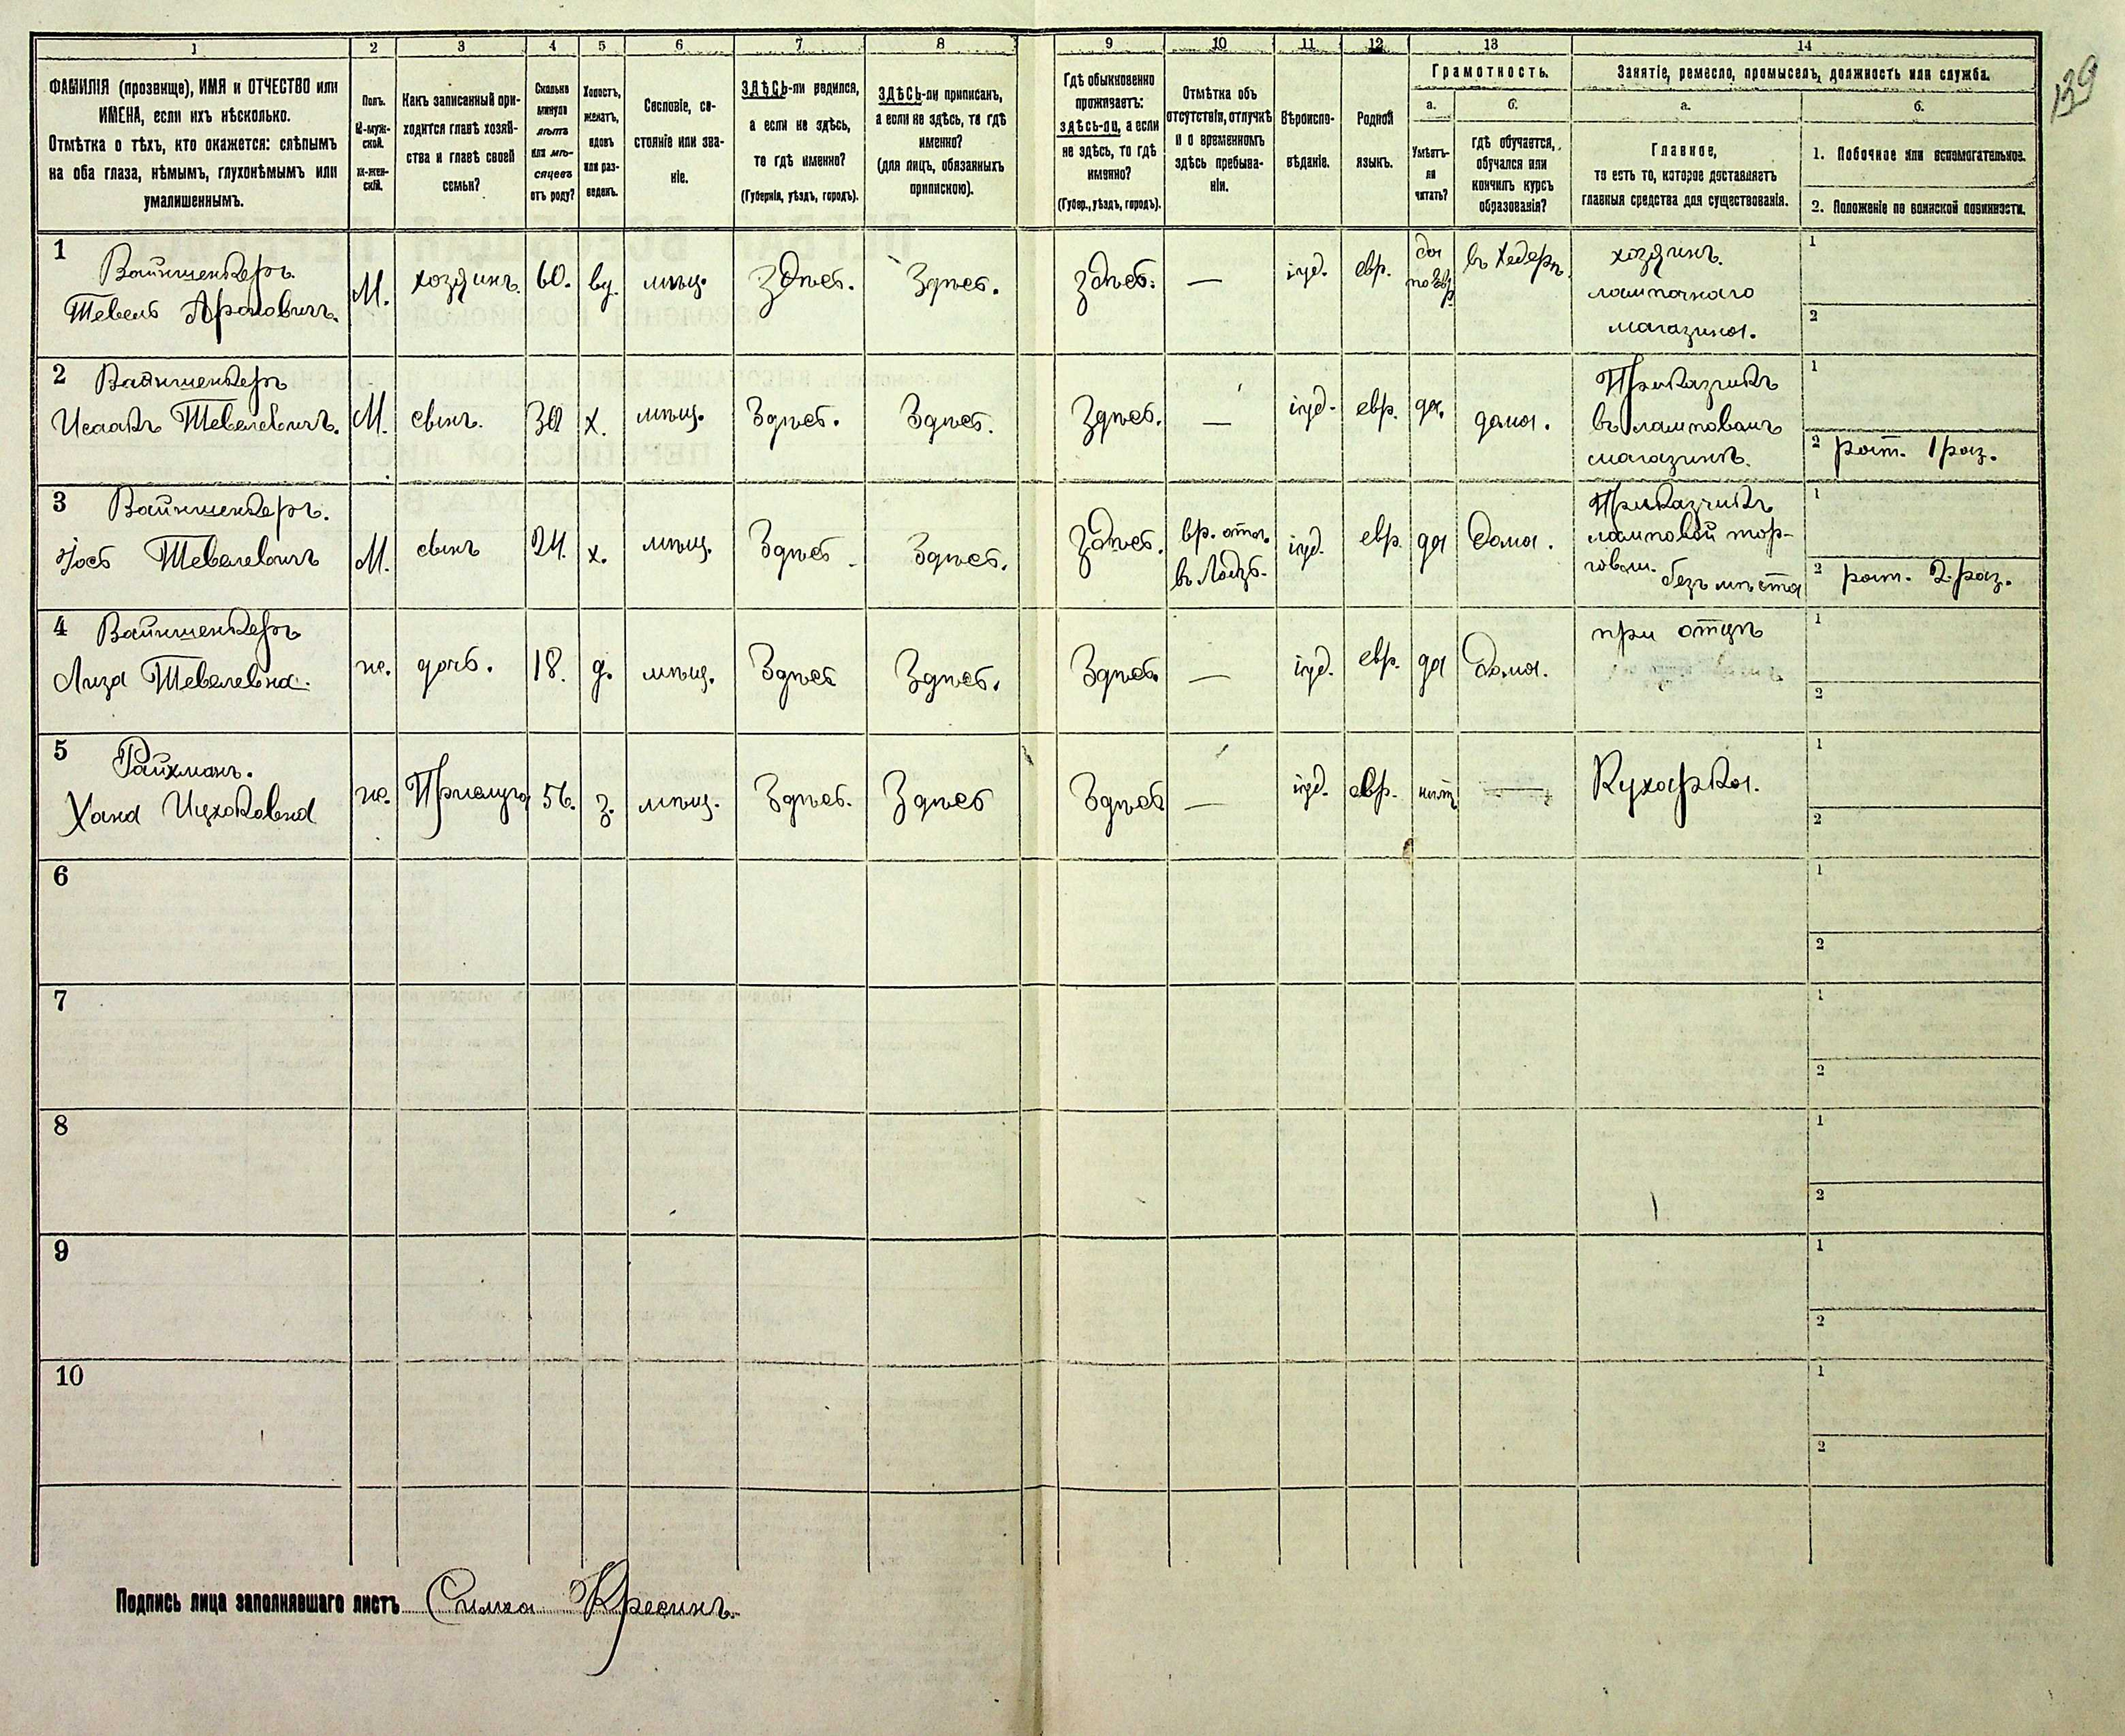 1 2 3 4 5 6 7 8 9 10 11 12 13 14
139
ФАМИЛІЯ (прозвище), ИМЯ и ОТЧЕСТВО или
ИМЕНА, если ихъ нѣсколько.
Отмѣтка о тѣхъ, кто окажется: слѣпымъ
на оба глаза, нѣмымъ, глухонѣмымъ или
умалишеннымъ.
Полъ.
М-муж-
ской.
ж-жен-
скій.
Какъ записанный при-
ходится главѣ хозяй-
ства и главѣ своей
семьи?
Сколько
минуло
лѣтъ
или мѣ-
сяцевъ
отъ роду?
Холостъ,
женатъ,
вдовъ
или раз-
веденъ.
Сословіе, со-
стояніе или зва-
ніе.
ЗДѢСЬ-ли родился,
а если не здѣсь,
то гдѣ именно?
(Губернія, уѣздъ, городъ).
ЗДѢСЬ-ли приписанъ,
а если не здѣсь, то гдѣ
именно?
(для лицъ, обязанныхъ
припискою).
Гдѣ обыкновенно
проживаетъ:
здѣсь-ли, а если
не здѣсь, то гдѣ
именно?
(Губер., уѣздъ, городъ).
Отмѣтка объ
отсутствіи, отлучкѣ
и о временномъ
здѣсь пребыва-
ніи.
Вѣроиспо-
вѣданіе.
Родной
языкъ.
Грамотность.
а.
Умѣетъ-
ли
читать?
б.
гдѣ обучается,
обучался или
кончилъ курсъ
образованія?
Занятіе, ремесло, промыселъ, должность или служба.
а.
Главное,
то есть то, которое доставляетъ
главныя средства для существованія.
б.
1. Побочное или вспомогательное.
2. Положеніе по воинской повинности.
1
Вайншенкеръ
Тевель Ароновичъ.
М.
хозяинъ.
60.
вд.
мѣщ.
Здѣсь.
Здѣсь.
здѣсь.
—
іуд.
евр.
да
по Евр.
въ Хедерѣ.
хозяинъ.
лампочнаго
магазина.
1
2
2
Вайншенкеръ
Исаакъ Тевелевичъ.
М.
сынъ.
30
х.
мѣщ.
Здѣсь.
Здѣсь.
Здѣсь.
—
іуд.
евр.
да.
дома.
Приказчикъ
въ ламповомъ
магазинѣ.
1
2 рат. 1 раз.
3
Вайншенкеръ.
Іось Тевелевичъ
М.
сынъ
24.
х.
мѣщ.
Здѣсь
Здѣсь.
Здѣсь.
вр. отл.
въ Лодзь.
іуд.
евр.
да
дома.
Приказчикъ
ламповой тор-
говли.
безъ мѣста
1
2 рат. 2 раз.
4
Вайншенкеръ
Лиза Тевелевна.
ж.
дочь.
18.
д.
мѣщ.
Здѣсь
Здѣсь.
Здѣсь.
—
іуд.
евр.
да
дома.
при отцѣ
1
2
5
Райхманъ.
Хана Ицхоковна
ж.
Прислуга
56.
з.
мѣщ.
Здѣсь.
Здѣсь
Здѣсь
—
іуд.
евр.
нѣтъ
—
Кухарка.
1
2
6
1
2
7
1
2
8
1
2
9
1
2
10
1
2
Подпись лица заполнявшаго листъ Симха Кресинъ.